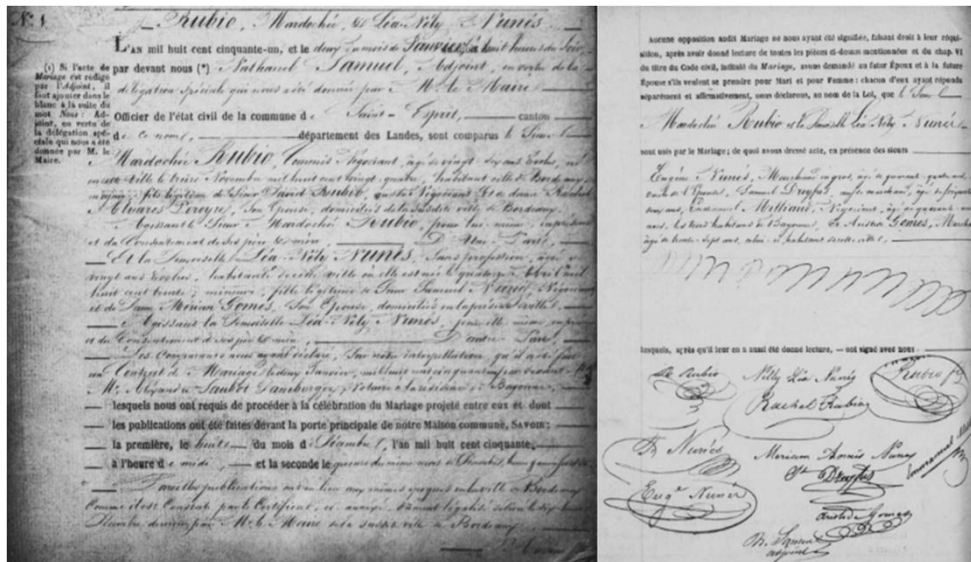 N.º 1
Rubio, Mardochée, et Léa Nély Nunés
L'AN mil huit cent cinquante-un, et le deux du mois de Janvier à huit heures du soir
(1) Si l'acte de
Mariage est rédigé
par l'Adjoint, il
faut ajouter dans le
blanc à la suite du
mot Nous: Ad-
joint, en vertu de
la délégation spé-
ciale qui nous a été
donnée par M. le
Maire.
par devant nous (*) Nathanel Samuel, Adjoint, en vertu de la
délégation spéciale qui nous a été donnée par M. le Maire
Officier de l'état civil de la commune de Saint-Esprit, canton
de ce nom, département des Landes, sont comparus le Sieur
Mardochée Rubio, Commis Négociant, âgé de vingt-six ans
ville le treize Novembre mil huit cent vingt quatre, habitant ville de Bordeaux
fils légitime de Sieur David Rubio, Négociant et de dame Rachel
Alvares Pereyre, son Epouse, domiciliés de la susdite ville de Bordeaux
Agissant le Sieur Mardochée Rubio, pour lui-même
et du Consentement de ses père et mère, D'Une Part,
Et la Demoiselle Léa Nély Nunés, Sans profession, âgée
vingt ans, habitante de cette ville où elle est née le quatorze Avril mil
huit cent trente, mineure, fille légitime de Sieur Samuel Nunés, Négociant
et de Dame Miriam Gomés, Son Epouse, domiciliés en la présente ville
Agissant la Demoiselle Léa Nély Nunés, pour elle même
et du Consentement de ses père et mère, D'autre Part,
Les Comparants nous ayant déclaré, Sur notre interpellation, qu'il a été fait
un Contrat de Mariage le deux Janvier, mil huit cent cinquante un par devant
Mr. Alexandre Dambourgez, Notaire à la résidence de Bayonne,
lesquels nous ont requis de procéder à la célébration du Mariage projeté entre eux et dont
les publications ont été faites devant la porte principale de notre Maison commune, SAVOIR:
la première, le huit du mois de Décembre, l'an mil huit cent cinquante,
à l'heure de midi, et la seconde le quinze du même mois de Décembre
Pareilles publications ont eu lieu aux mêmes jours en la ville de Bordeaux
Comme il est Constaté par le Certificat
dernier, par M. le Maire de la susdite ville de Bordeaux
Aucune opposition audit Mariage ne nous ayant été signifiée, faisant droit à leur réqui-
sition, après avoir donné lecture de toutes les pièces ci-dessus mentionnées et du chap. VI
du titre du Code civil, intitulé du Mariage, avons demandé au futur Époux et à la future
Épouse s'ils veulent se prendre pour Mari et pour Femme: chacun d'eux ayant répondu
séparément et affirmativement, nous déclarons, au nom de la Loi, que le Sieur
Mardochée Rubio et la Demoiselle Léa Nély Nunés
sont unis par le Mariage; de quoi avons dressé acte, en présence des sieurs
Eugène Nunés, Marchand, âgé de quarante
oncle de l'Epouse, Samuel Dreyfus, marchand, âgé de
ans, Emmanuel Milliaud, Négociant, âgé de quarante
ans, les trois habitans de Bayonne, et Gomés, Marchand
âgé de trente-sept ans, habitant cette ville,
lesquels, après qu'il leur en a aussi été donné lecture, — ont signé avec nous:
M Rubio
Nélly Léa Nunés
D Rubio
Rachel Rubio
S Nunés
Miriam Gomés Nunes
St Dreyfus
Eug.e Nunés
Gomes
N. Samuel
adjoint